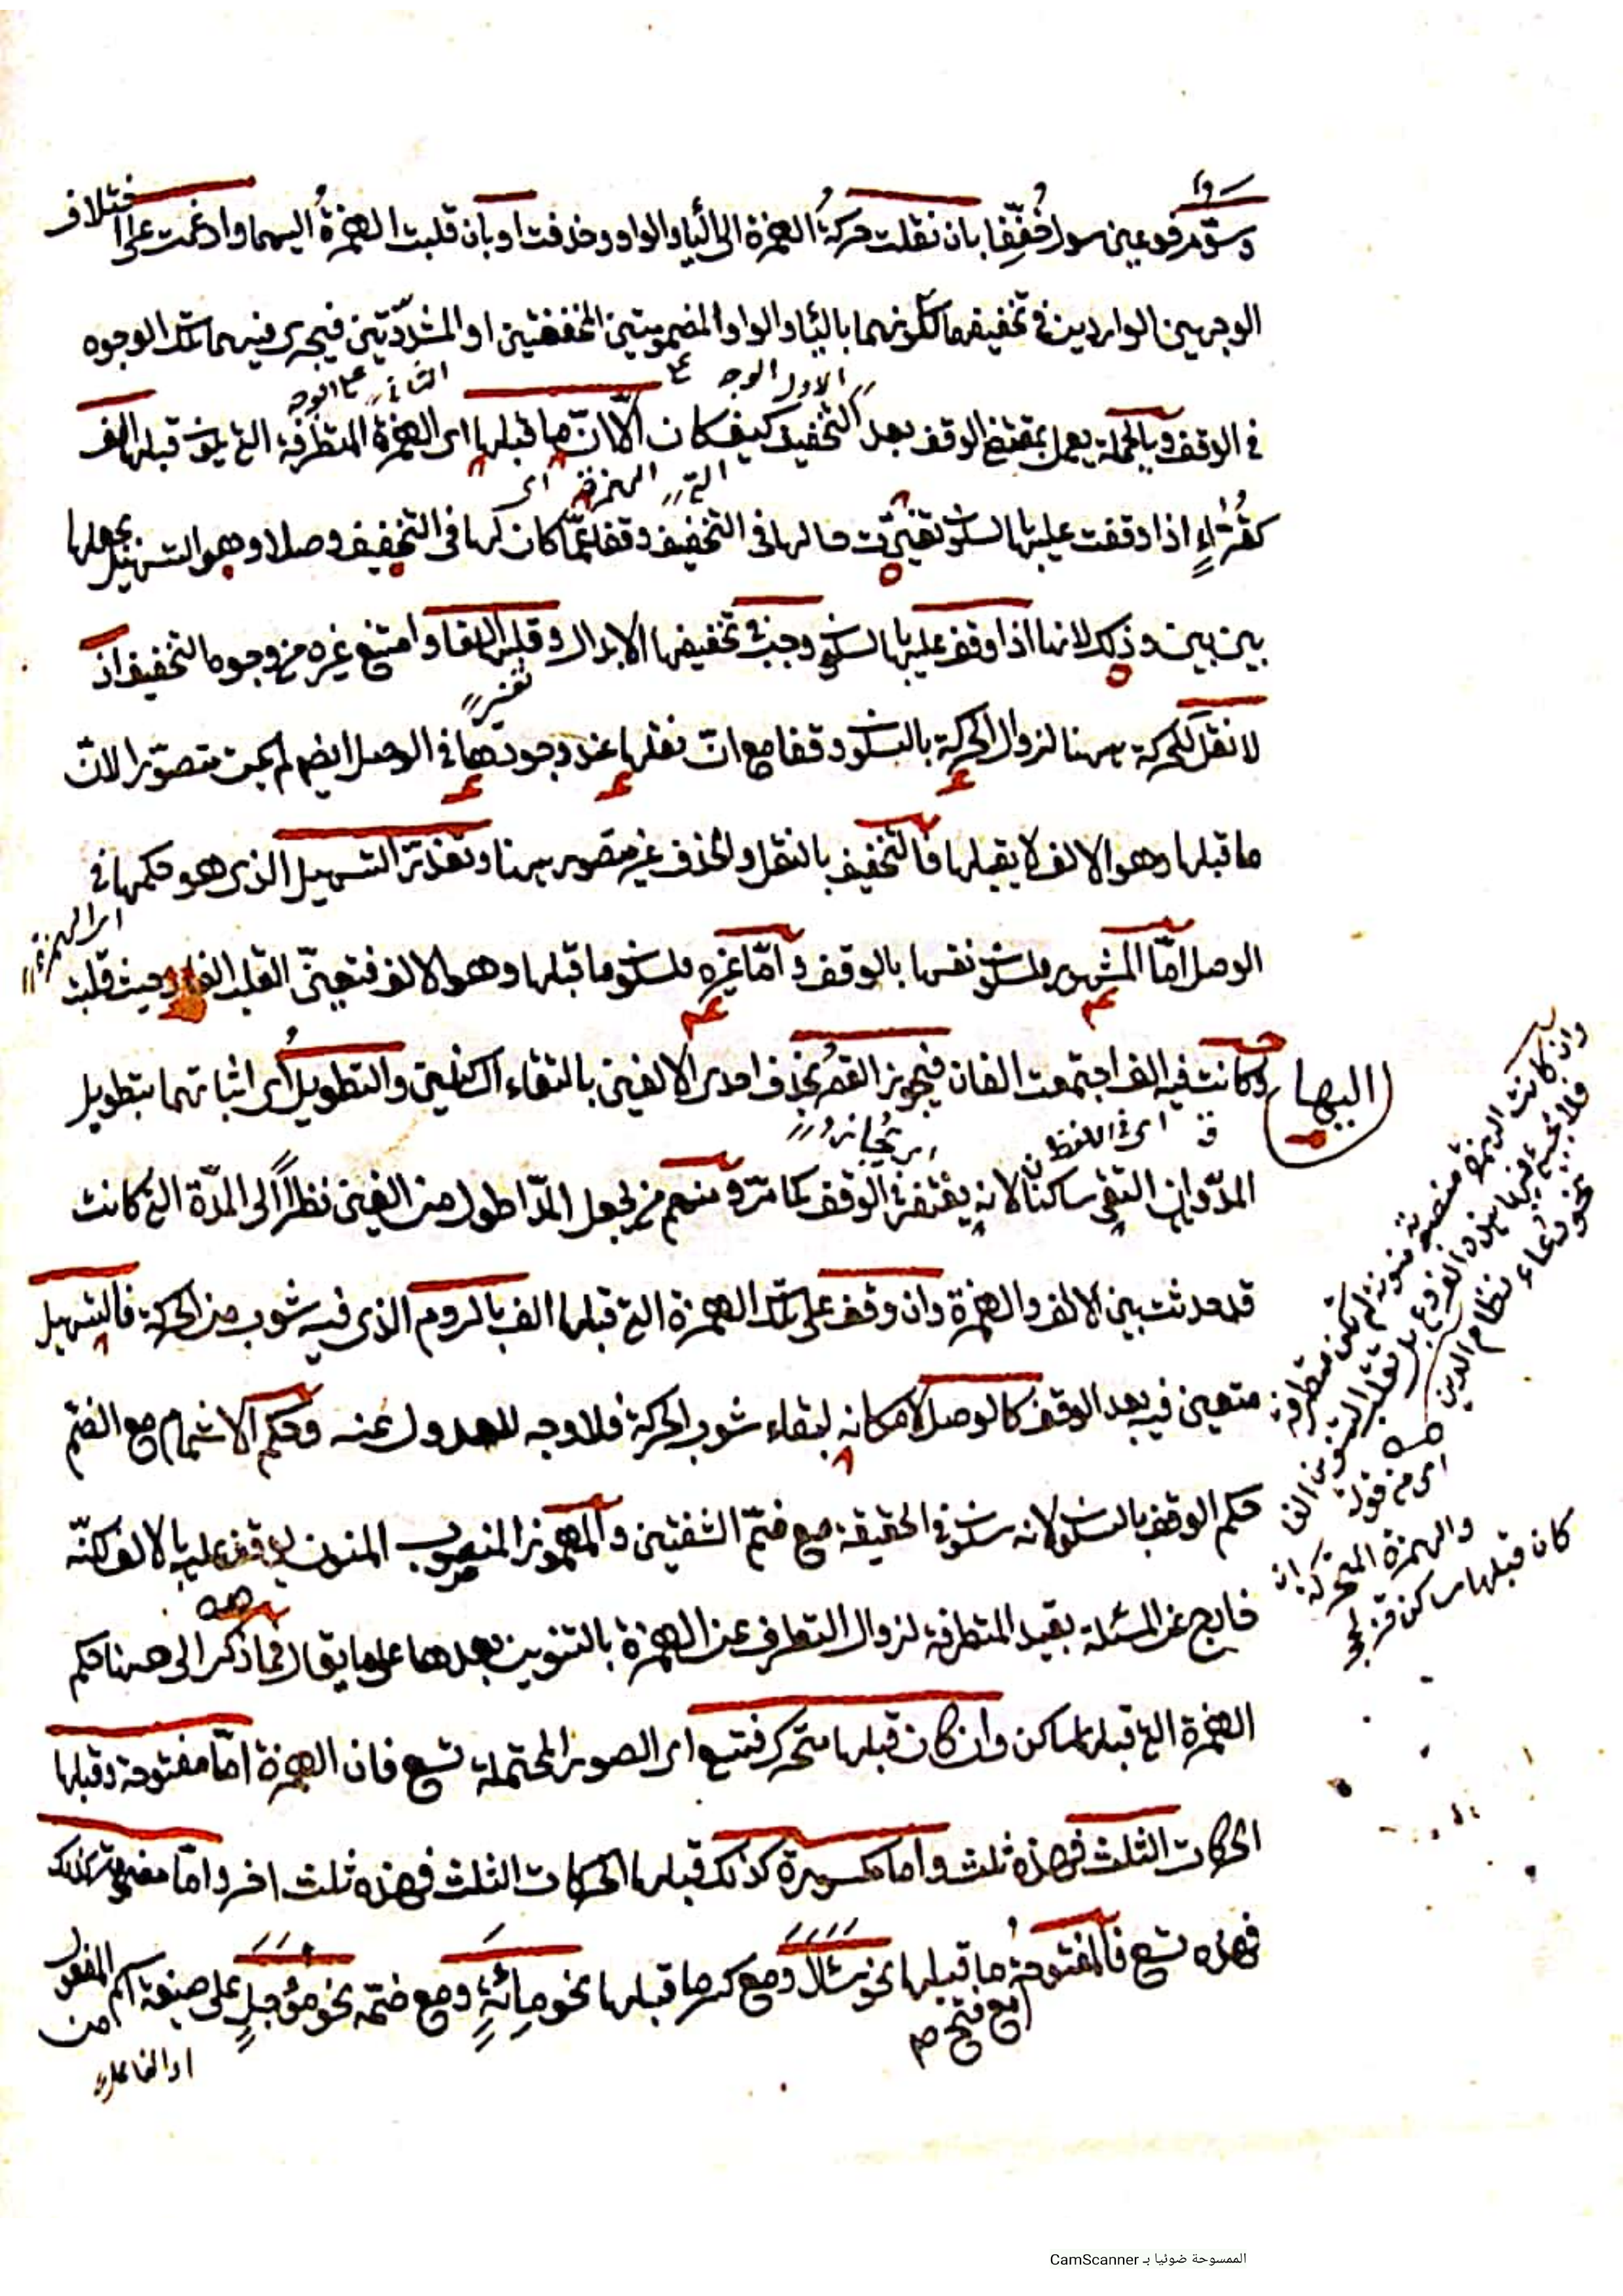 وسوّ مرفوعين سواء خُفِّفا بان نقلت حركةُ الهمزة الى الياء والواو وحذفت او بان قلبت الهمزةُ اليهما وادغمت على اختلاف
الوجهين الواردين في تخفيفهما لكونهما بالياء والواو المضمومتين المخففتين او المشدّدتين فيجرى فيهما تلك الوجوه
الاول الوجه
الثانى الوجه
في الوقف وبالجملة يعمل بمقتضى الوقف بعد التخفيف كيف كان الّا انّ ما قبلها اى الهمزة المتطرفة التي يكون قبلها الف
التي الهمزة اى
كقُرّاءٍ اذا وقفت عليها بالسكون تغيّرت حالها في التخفيف وقفا عمّا كان لها في التخفيف وصلا وهو التسهيل بجعلها
بين بين وذلك لانها اذا وقف عليها بالسكون وجب في تخفيفها الابدال وقلبها الفا وامتنع غيره من وجوه التخفيف اذ
تفسير
لا نقل للحركة ههنا لزوال الحركة بالسكون وقفا مع انّ نقلها عند وجودها في الوصل ايضا لم يكن متصوّرا لانّ
ما قبلها وهو الالف لا يقبلها فالتخفيف بالنقل والحذف غير متصور ههنا وتعذّر التسهيل الذى هو حكمها في
اى الهمزة
الوصل امّا المشهور فلسكون نفسها بالوقف وامّا غيره فلسكون ما قبلها وهو الالف فتعيّن القلب الفا وحيث قلبت
اليها
وكانت فيه الف اجتمعت الفان فيجوز القصُر بحذف احدى الالفين بالتقاء الساكنين والتطويلُ اى اثباتهما بتطويل
اى في اللفظ
المدّ وان التقى ساكنان لانه يغتفر في الوقف كما مرّ ومنهم من يجعل المدّ اطول من الفين نظراً الى المدّة التي كانت
قد حدثت بين الالف والهمزة وان وقف على تلك الهمزة التي قبلها الف بالروم الذى فيه شوب من الحركة فالتسهيل
متعين فيه بعد الوقف كالوصل لامكانه لبقاء شوب الحركة فلا وجه للعدول عنه وحكم الاشمام مع الضمّ
حكم الوقف بالسكون لانه سكون في الحقيقة مع ضمّ الشفتين والمهموز المنصوب المنون يوقف عليه بالالف لكنّه
خارج عن المسئلة بقيد المتطرفة لزوال التطرف عن الهمزة بالتنوين بعدها على ما يقال فما ذكر الى ههنا حكم
الهمزة التي قبلها ساكن وان كان قبلها متحرك فتسع اى الصور المحتملة تسع فان الهمزة امّا مفتوحة وقبلها
الحركات الثلث فهذه ثلث واما مكسورة كذلك قبلها الحركات الثلث فهذه ثلث اخر وامّا مضمومة كذلك
فهذه تسع فالمفتوحةُ ما قبلها نحو سَئَالَ ومع كسر ما قبلها نحو مِائَةٍ ومع ضمّه نحو مُؤجلٍ على صيغة اسم المفعول
مع فتح
من
او الفاعل
وان كانت الهمزة منصوبة منونة لم تكن متطرفة
فلا يجئ فيها هذه الفروع بل تقلب التنوين الفا
نحو دعاء نظام الدين
اى من قوله
والهمزة المتحركة ان
كان قبلها ساكن
الممسوحة ضوئيا بـ CamScanner